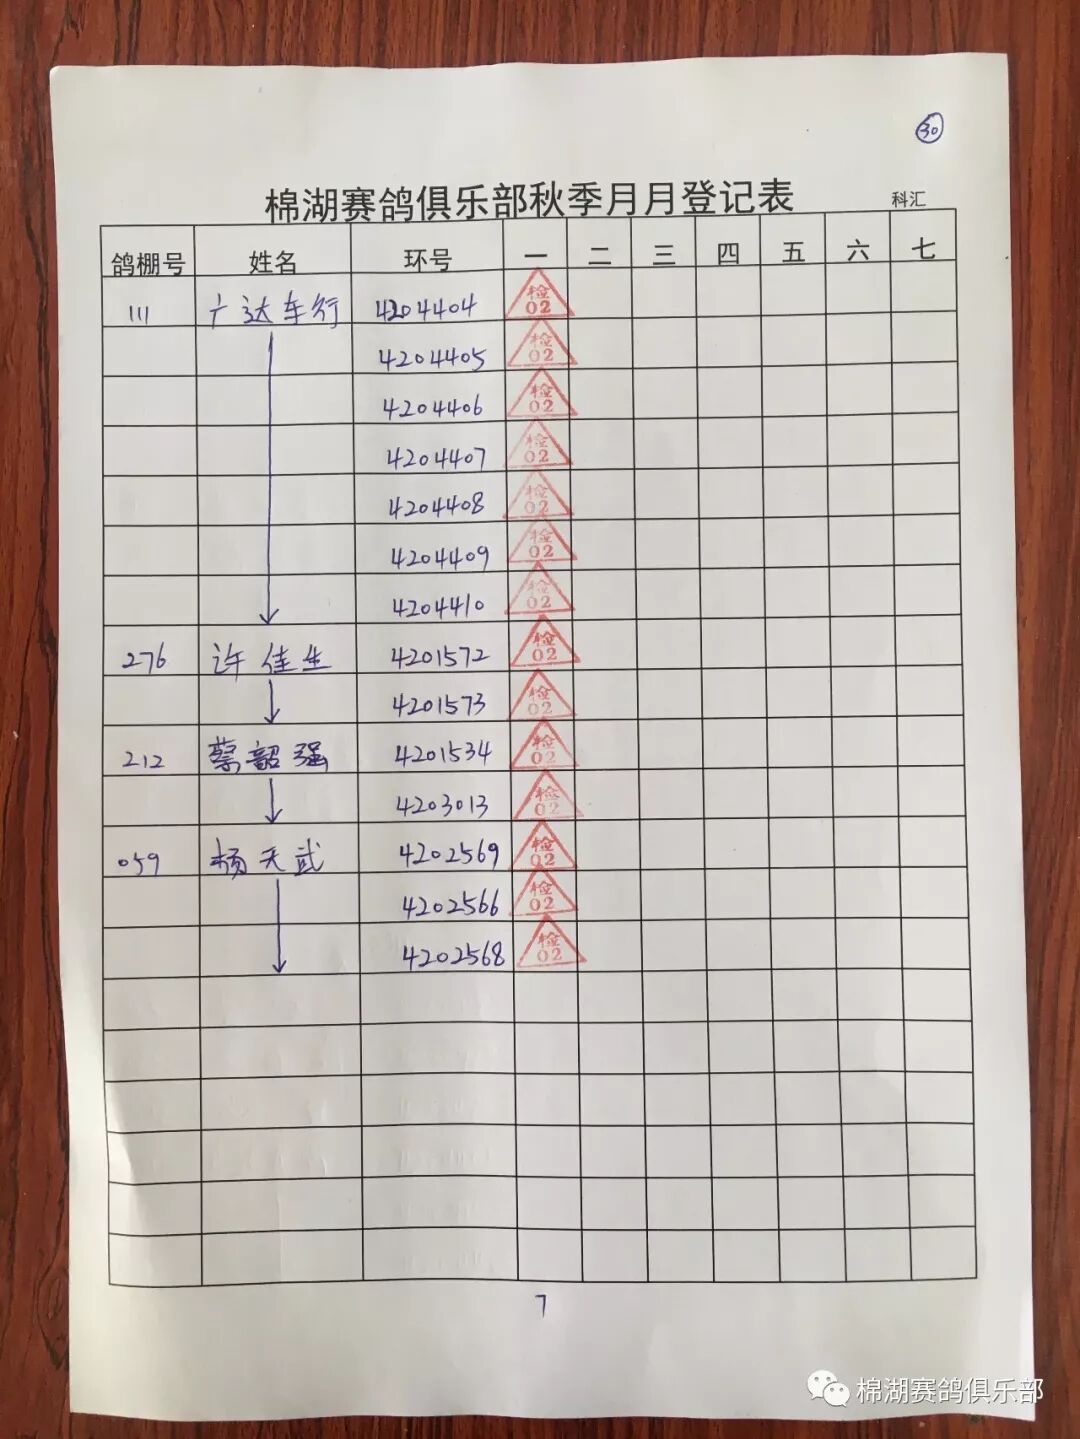 ㉚
棉湖赛鸽俱乐部秋季月月登记表 科汇
鸽棚号 姓名 环号 一 二 三 四 五 六 七
111 广达车行 4204404 检02
4204405 检02
4204406 检02
4204407 检02
4204408 检02
4204409 检02
4204410 检02
276 许佳生 4201572 检02
4201573 检02
212 蔡韶强 4201534 检02
4203013 检02
059 杨天武 4202569 检02
4202566 检02
4202568 检02
7
棉湖赛鸽俱乐部